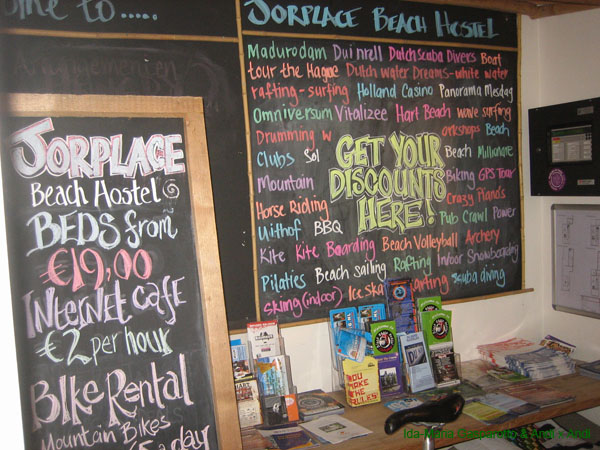 ome to.....
JORPLACE
Beach Hostel
BEDS from
€19,00
INTERNET CAFE
€2 per hour
BIKE RENTAL
Mountain Bikes
a day
JORPLACE BEACH HOSTEL
Madurodam Duinrell Dutch scuba Divers Boat
tour the Hague Dutch water Dreams-white water
rafting-surfing Holland Casino Panorama Mesdag
Omniversum Vitalizee Hart Beach wave surfing
Drumming w orkshops Beach
Clubs Sol Beach Millionaire
Mountain Biking GPS Tour
Horse Riding Crazy Piano's
Uithof BBQ Pub Crawl Power
Kite Kite Boarding Beach Volleyball Archery
Pilaties Beach sailing Rafting Indoor Snowboarding
skiing (indoor) Ice ska arting scuba diving
GET YOUR
DISCOUNTS
HERE!
YOU
MAKE
THE
RULES